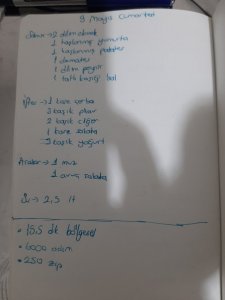 9 Mayıs Cumartesi
Sahur → 2 dilim ekmek
1 haşlanmış yumurta
1 haşlanmış patates
1 domates
1 dilim peynir
1 tatlı kaşığı bal
İftar → 1 kase çorba
3 kaşık pilav
2 kaşık ciğer
1 kase salata
3 kaşık yoğurt
Aralar → 1 muz
1 avuç
Su → 2,5 lt
• 15,5 dk bölgesel
• 6000 adım
• 250 zıp